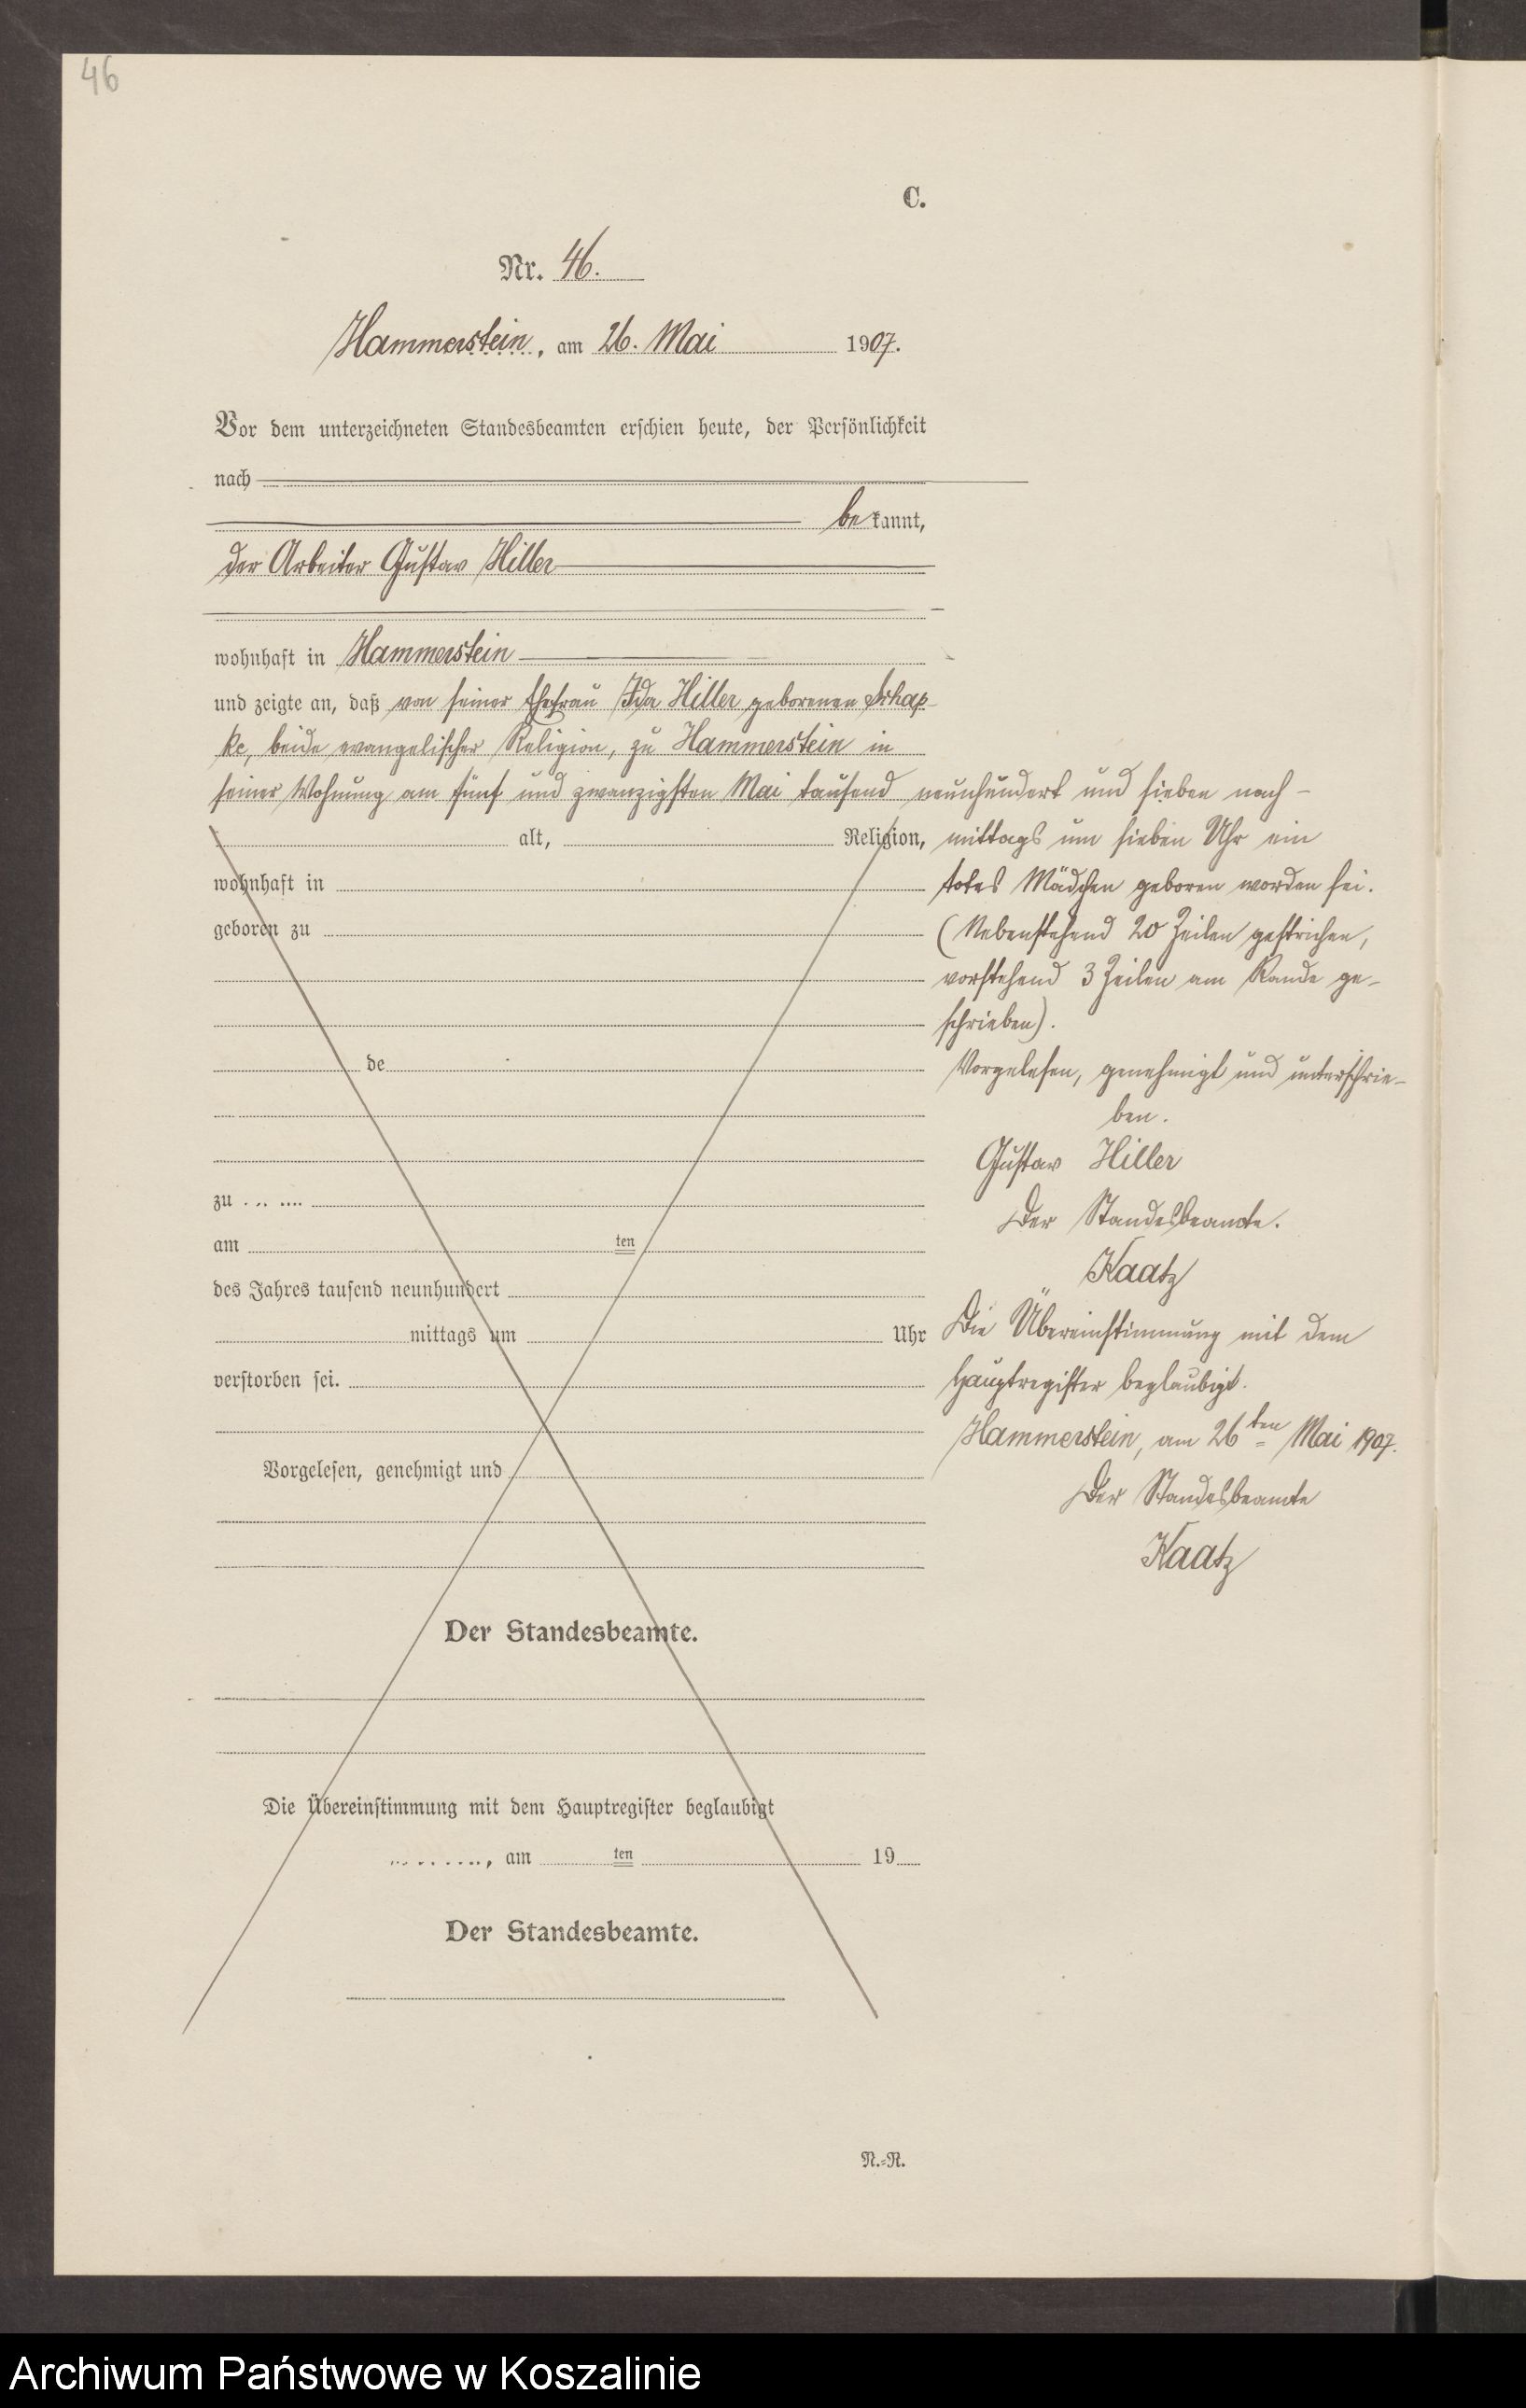 46
C.
Nr. 46.
Hammerstein, am 26. Mai 1907.
Vor dem unterzeichneten Standesbeamten erschien heute, der Persönlichkeit
nach
bekannt,
der Arbeiter Gustav Hiller
wohnhaft in Hammerstein
und zeigte an, daß von seiner Ehefrau Ida Hiller geborenen Schap-
ke, beide evangelischer Religion, zu Hammerstein in
seiner Wohnung am fünf und zwanzigsten Mai tausend neunhundert und sieben nach-
alt, Religion, mittags um sieben Uhr ein
wohnhaft in totes Mädchen geboren worden sei.
geboren zu (Nebenstehend 20 Zeilen gestrichen,
vorstehend 3 Zeilen am Rande ge-
schrieben).
de Vorgelesen, genehmigt und unterschrie-
ben.
Gustav Hiller
zu Der Standesbeamte.
am ten Kaatz
des Jahres tausend neunhundert
mittags um Uhr Die Übereinstimmung mit dem
verstorben sei. Hauptregister beglaubigt.
Hammerstein, am 26ten Mai 1907.
Vorgelesen, genehmigt und
Der Standesbeamte
Kaatz
Der Standesbeamte.
Die Übereinstimmung mit dem Hauptregister beglaubigt
, am ten 19
Der Standesbeamte.
N.-R.
Archiwum Państwowe w Koszalinie